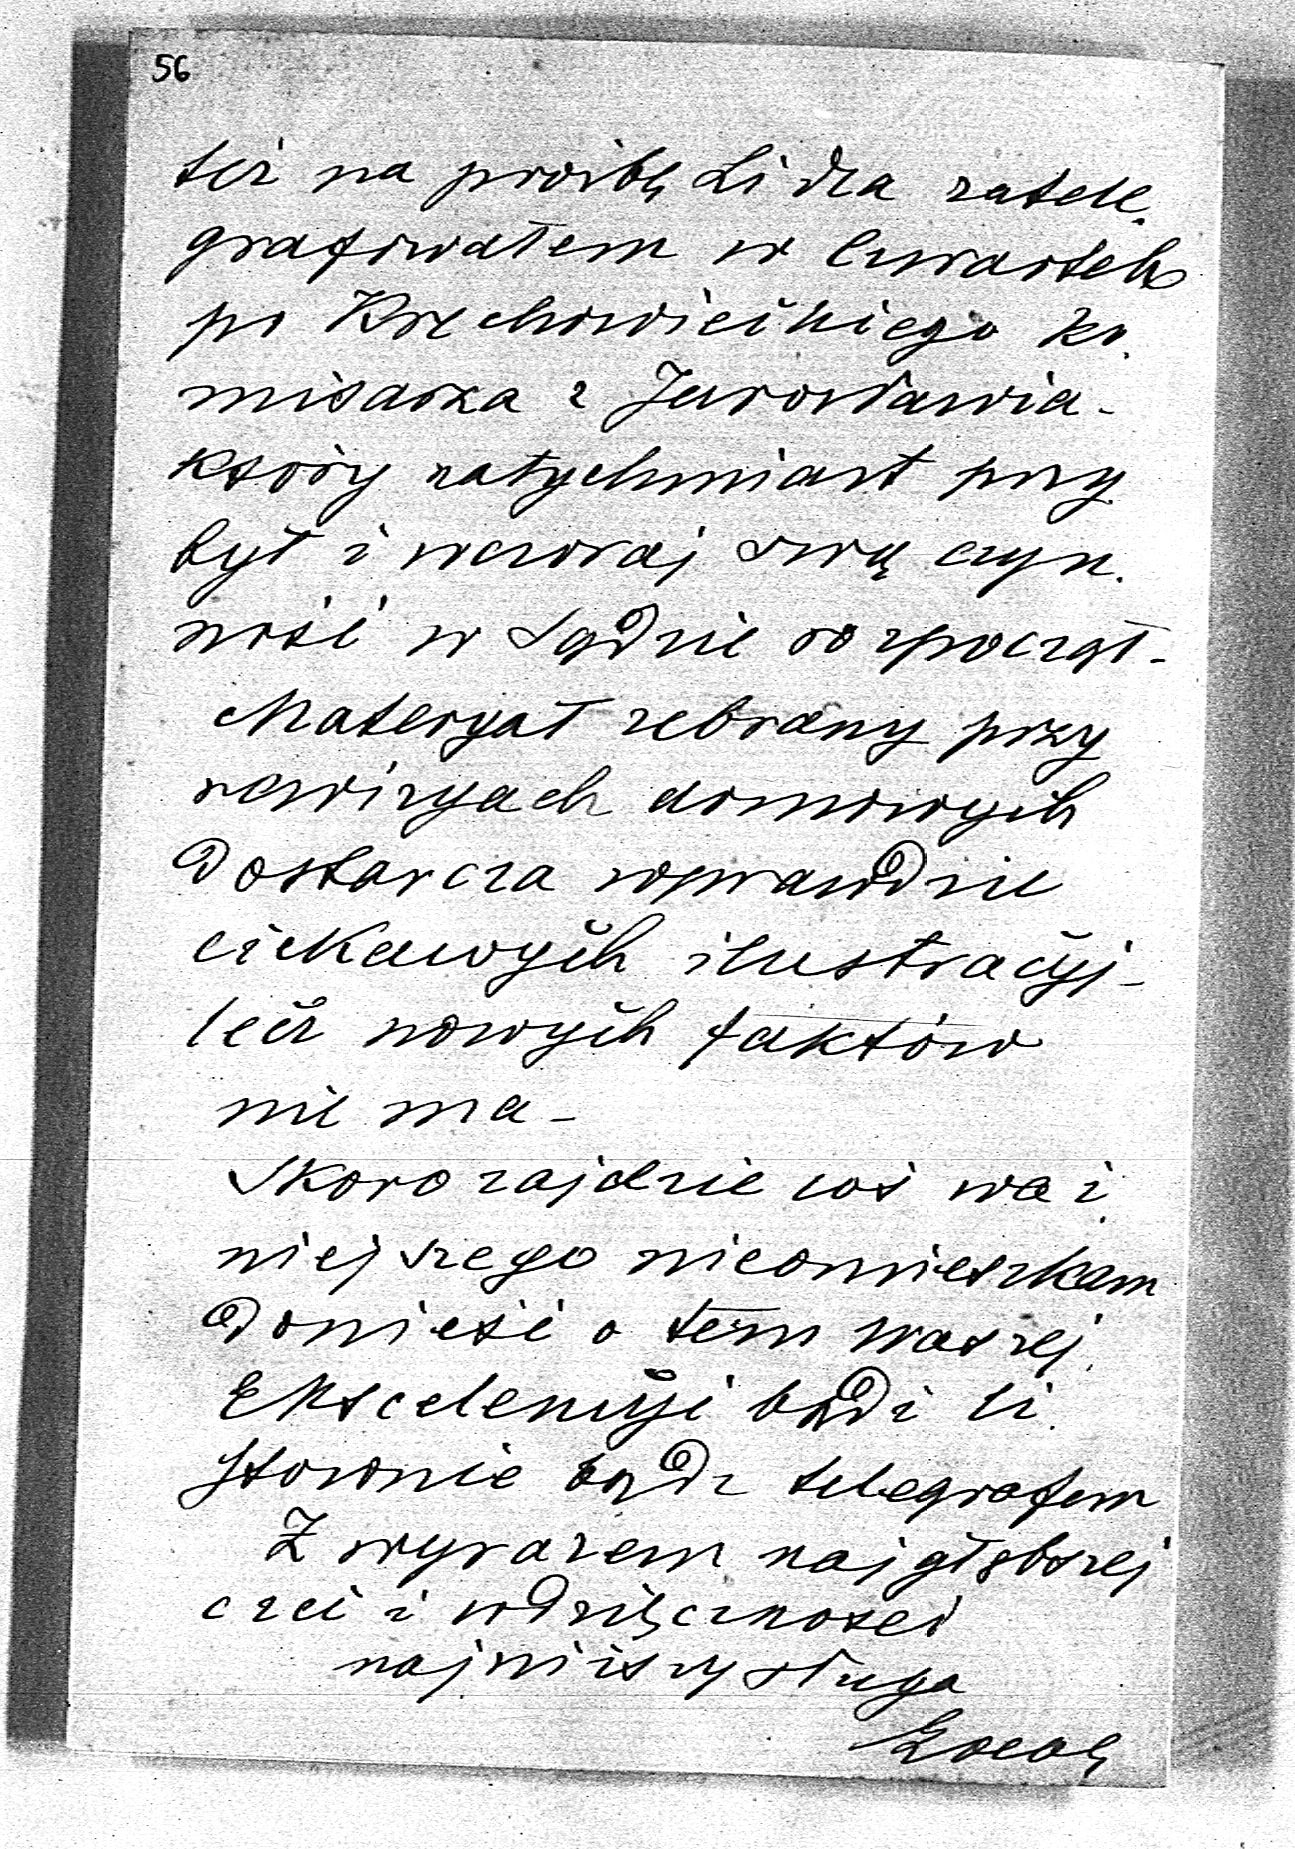 56
też na prośbę Lidla zatele.
grafowałem w Czwartek
po Krzechowieckiego ko.
misarza z Jarosławia-
który natychmiast przy
był i wczoraj swą czyn.
ność w Sądzie rozpoczął-
Materyał zebrany przy
rewizyach domowych
Dostarcza wprawdzie
ciekawych ilustracyj-
lecz nowych faktów
nie ma-
Skoro zajdzie coś waż.
niejszego nieomieszkam
Donieść o tem Waszej
Ekscelencyi bądź li.
stownie bądź telegrafem
Z wyrazem najgłębszej
czci i wdzięczności
najniższy sługa